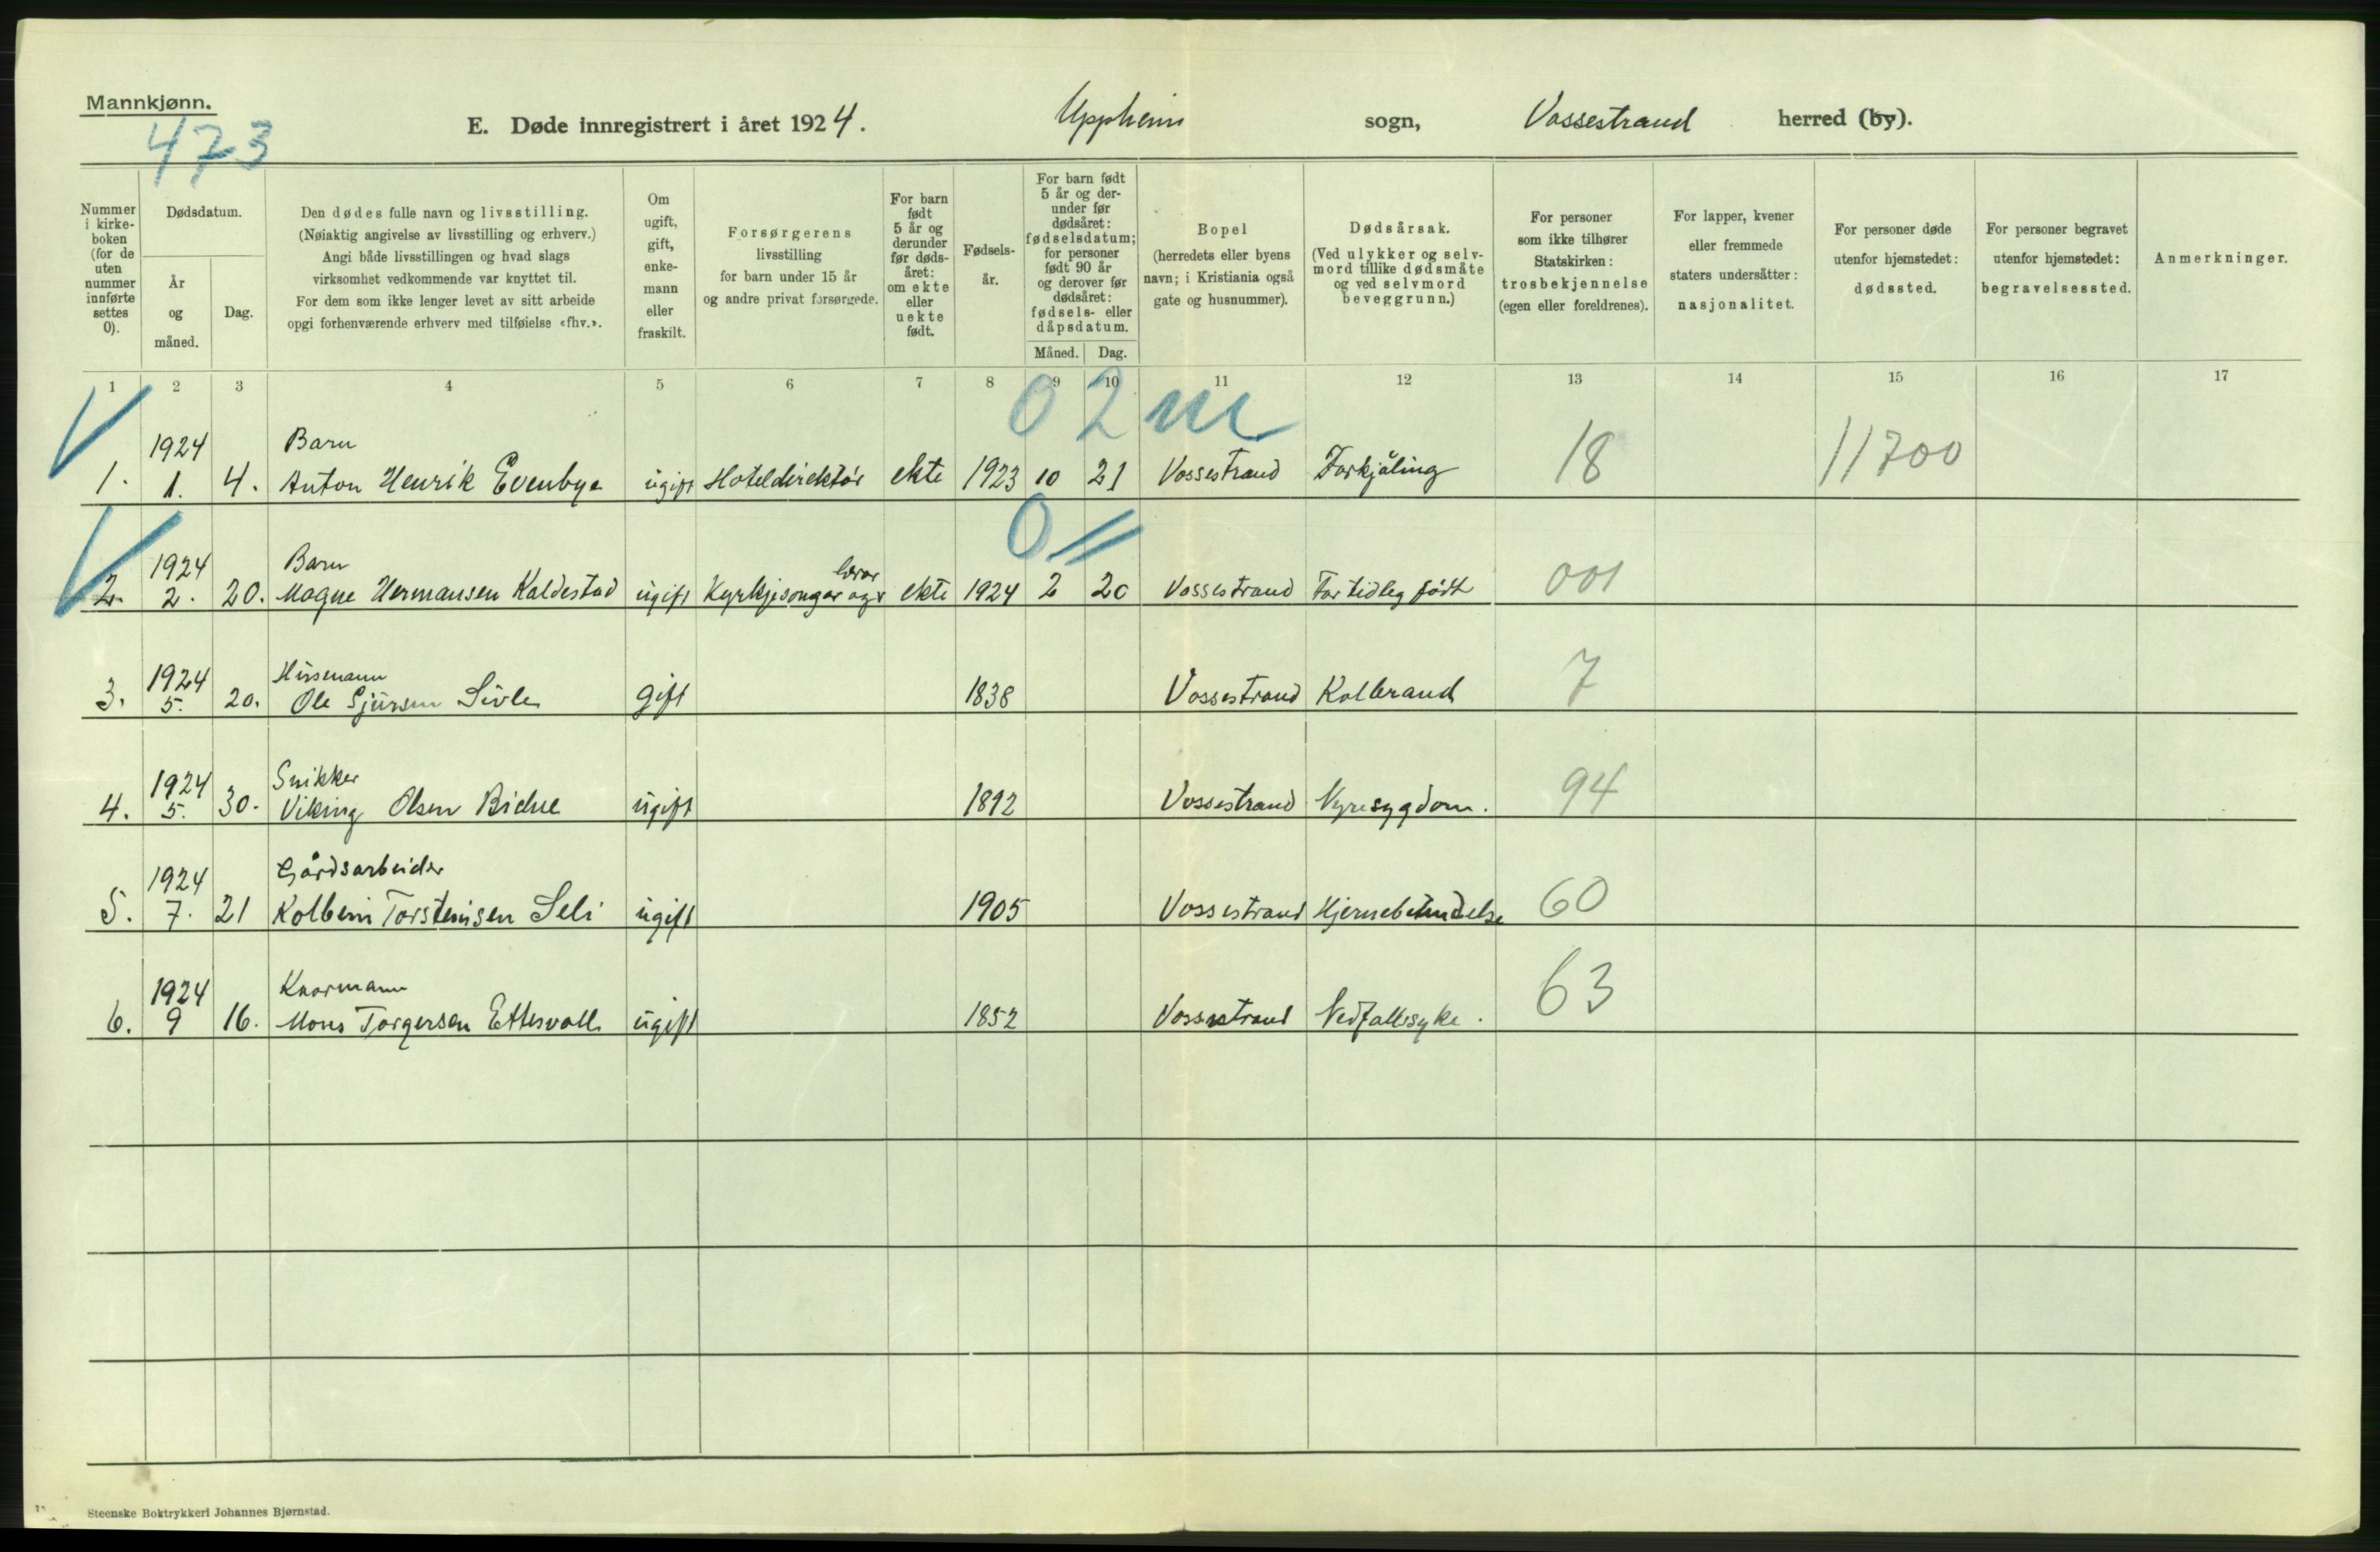 Mannkjønn.
473
E. Døde innregistrert i året 1924. Uppheim sogn, Vossestrand herred (by).
Nummer i kirke-boken (for de uten nummer innførte settes 0).
Dødsdatum.
År og måned.
Dag.
Den dødes fulle navn og livsstilling.
(Nøiaktig angivelse av livsstilling og erhverv.)
Angi både livsstillingen og hvad slags
virksomhet vedkommende var knyttet til.
For dem som ikke lenger levet av sitt arbeide
opgi forhenværende erhverv med tilføielse «fhv.».
Om ugift, gift, enke-mann eller fraskilt.
Forsørgerens
livsstilling
for barn under 15 år
og andre privat forsørgede.
For barn født 5 år og derunder før døds-året: om ekte eller uekte født.
Fødsels-år.
For barn født 5 år og der-under før dødsåret: fødselsdatum; for personer født 90 år og derover før dødsåret: fødsels- eller dåpsdatum.
Måned. Dag.
Bopel
(herredets eller byens
navn; i Kristiania også
gate og husnummer).
Dødsårsak.
(Ved ulykker og selv-
mord tillike dødsmåte
og ved selvmord
beveggrunn.)
For personer
som ikke tilhører
Statskirken:
trosbekjennelse
(egen eller foreldrenes).
For lapper, kvener
eller fremmede
staters undersåtter:
nasjonalitet.
For personer døde
utenfor hjemstedet:
dødssted.
For personer begravet
utenfor hjemstedet:
begravelsessted.
Anmerkninger.
1 2 3 4 5 6 7 8 9 10 11 12 13 14 15 16 17
02 m
1924 Barn
1. 1. 4. Anton Henrik Evenbye ugift Hoteldirektør ekte 1923 10 21 Vossestrand Forkjøling 18 11700
0 //
1924 Barn lærar
2. 2. 20. Magne Hermansen Kaldestad ugift Kyrkjesongar og ekte 1924 2 20 Vossestrand For tidleg født 001
1924 Husmann
3. 5. 20. Ole Sjursen Sivle gift 1838 Vossestrand Kolbrand 7
1924 Snikker
4. 5. 30. Viking Olsen Bidne ugift 1892 Vossestrand Nyresygdom. 94
1924 Gårdsarbeider
5. 7. 21 Kolbein Torsteinsen Seli ugift 1905 Vossestrand Hjernebetendelse 60
1924 Kaarmann
6. 9 16. Mons Torgersen Ettesvoll ugift 1852 Vossestrand Nedfallssyke. 63
Steenske Boktrykkeri Johannes Bjørnstad.